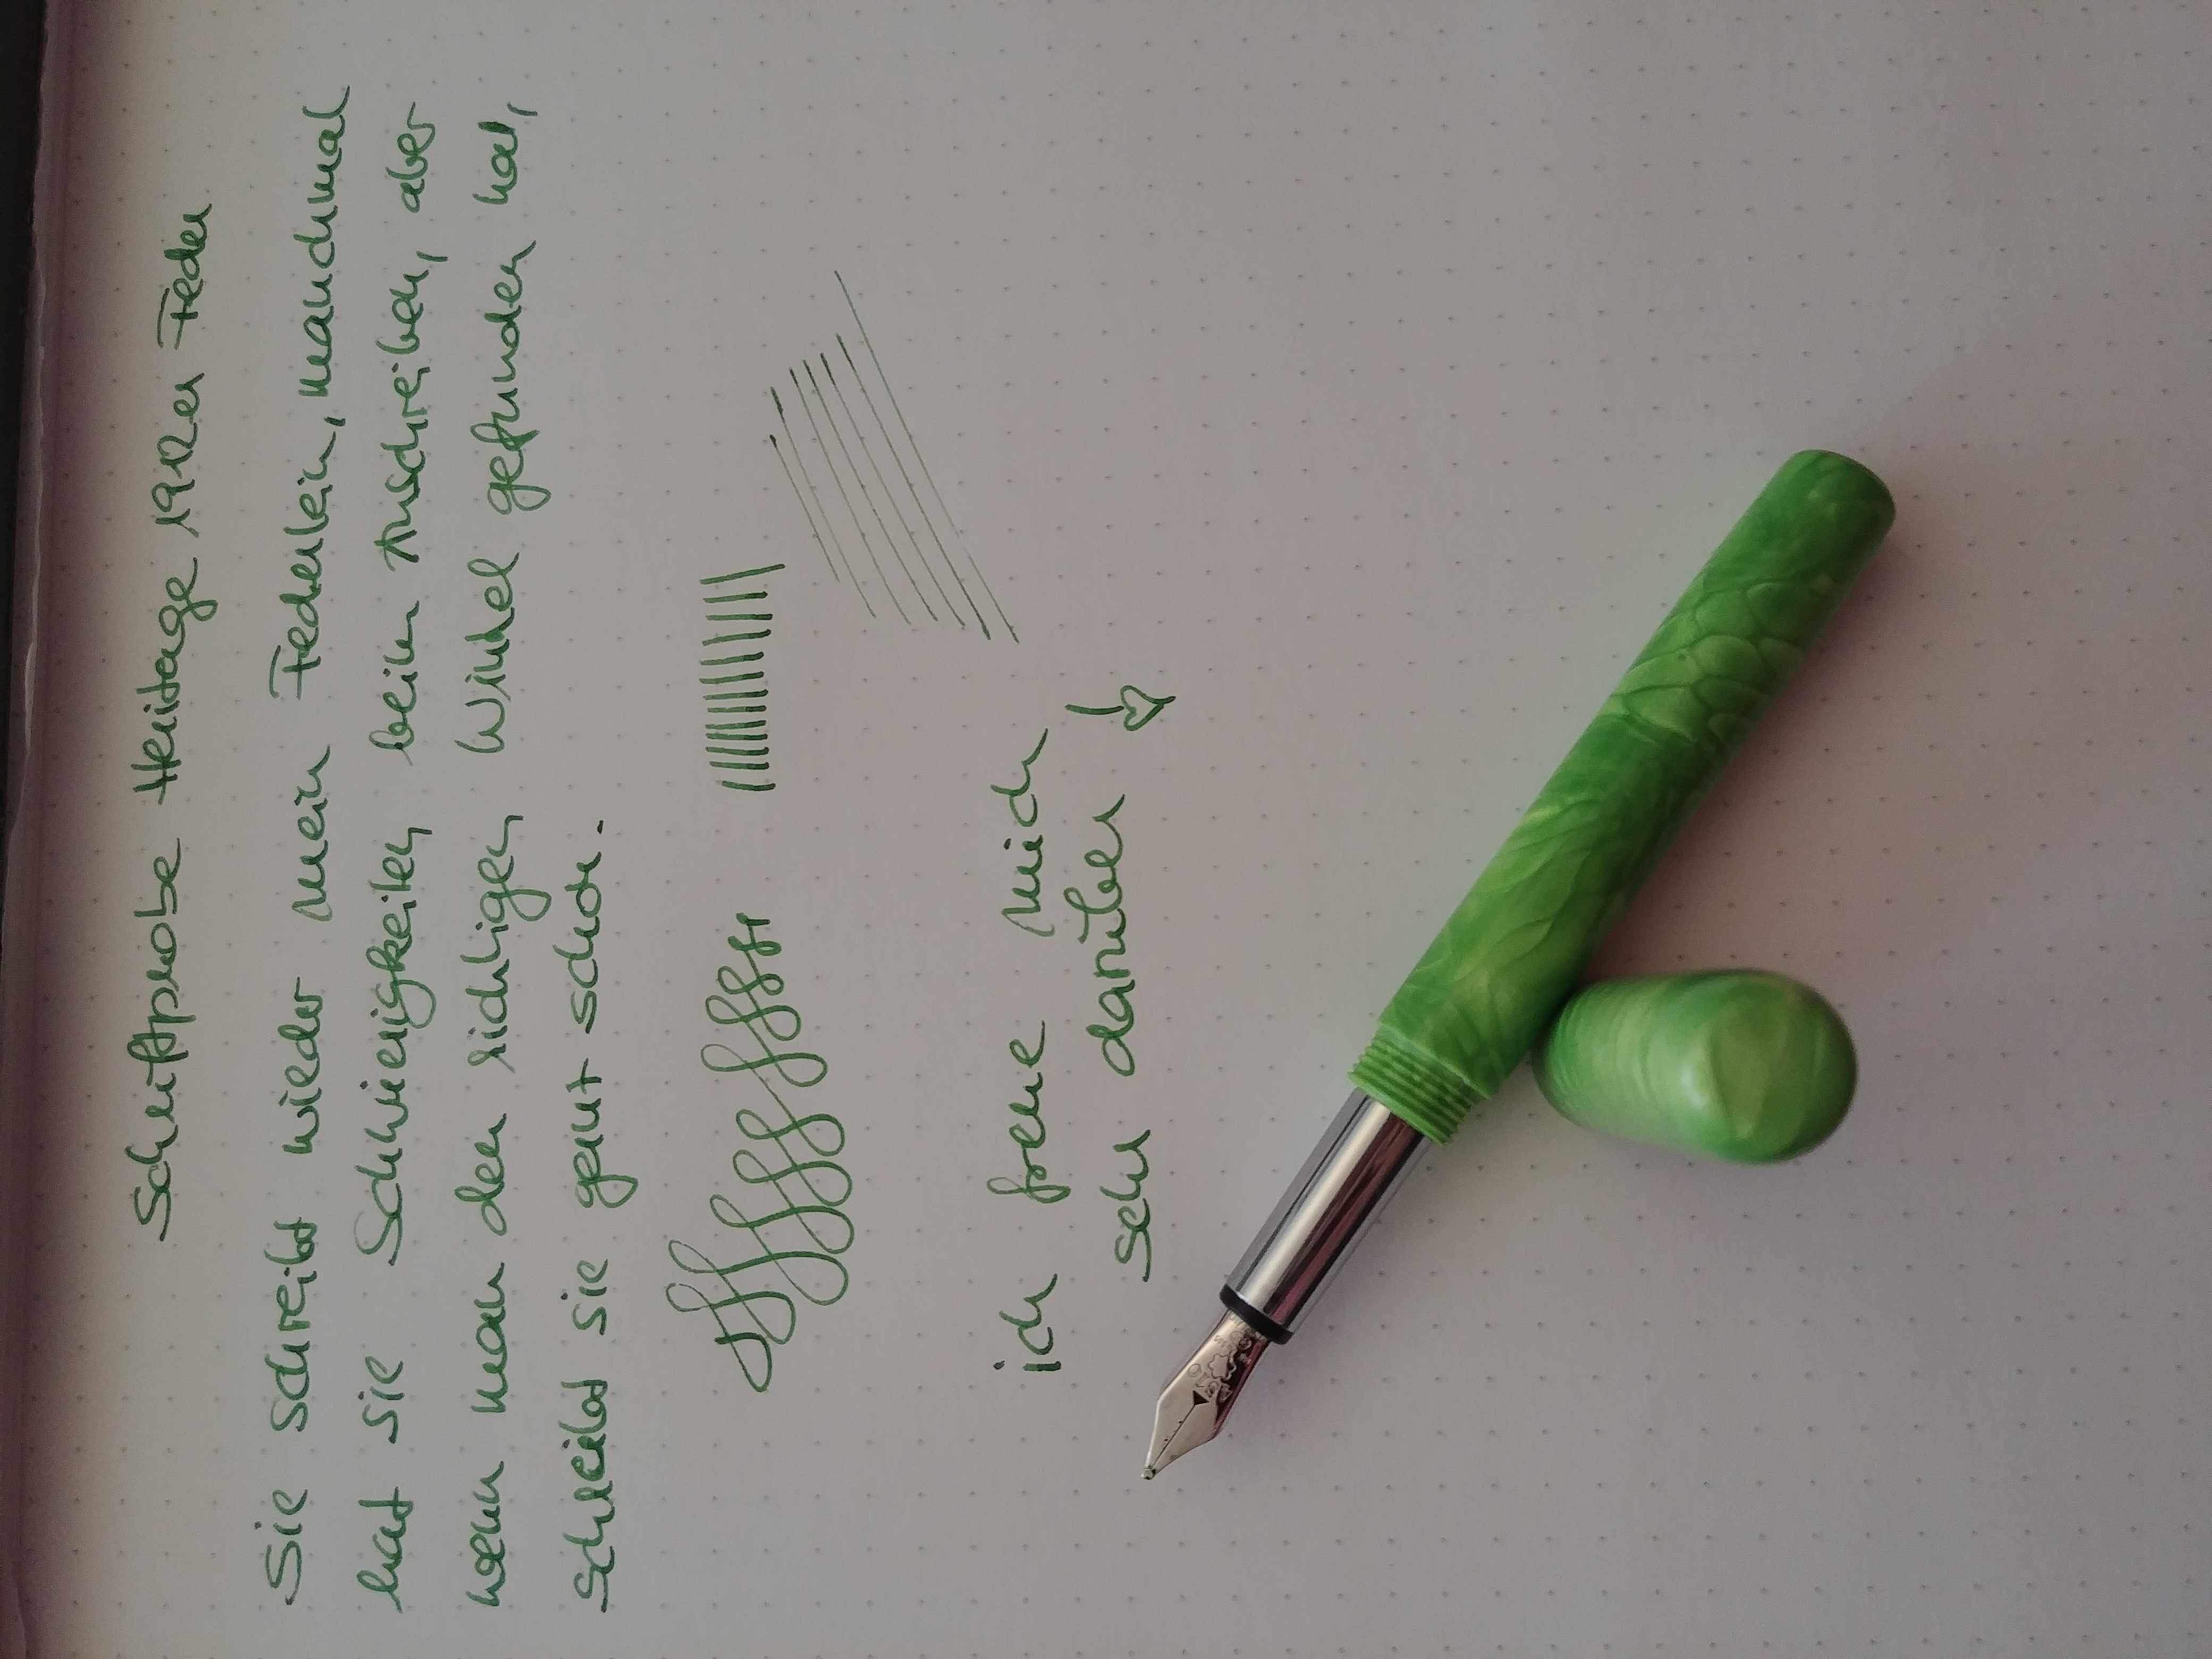 Schriftprobe Heritage 1912er Feder
Sie schreibt wieder mein Federlein, manchmal
hat sie Schwierigkeiten beim Anschreiben, aber
wenn man den richtigen Winkel gefunden hat,
schreibt sie ganz schön.
ich freue mich
sehr darüber